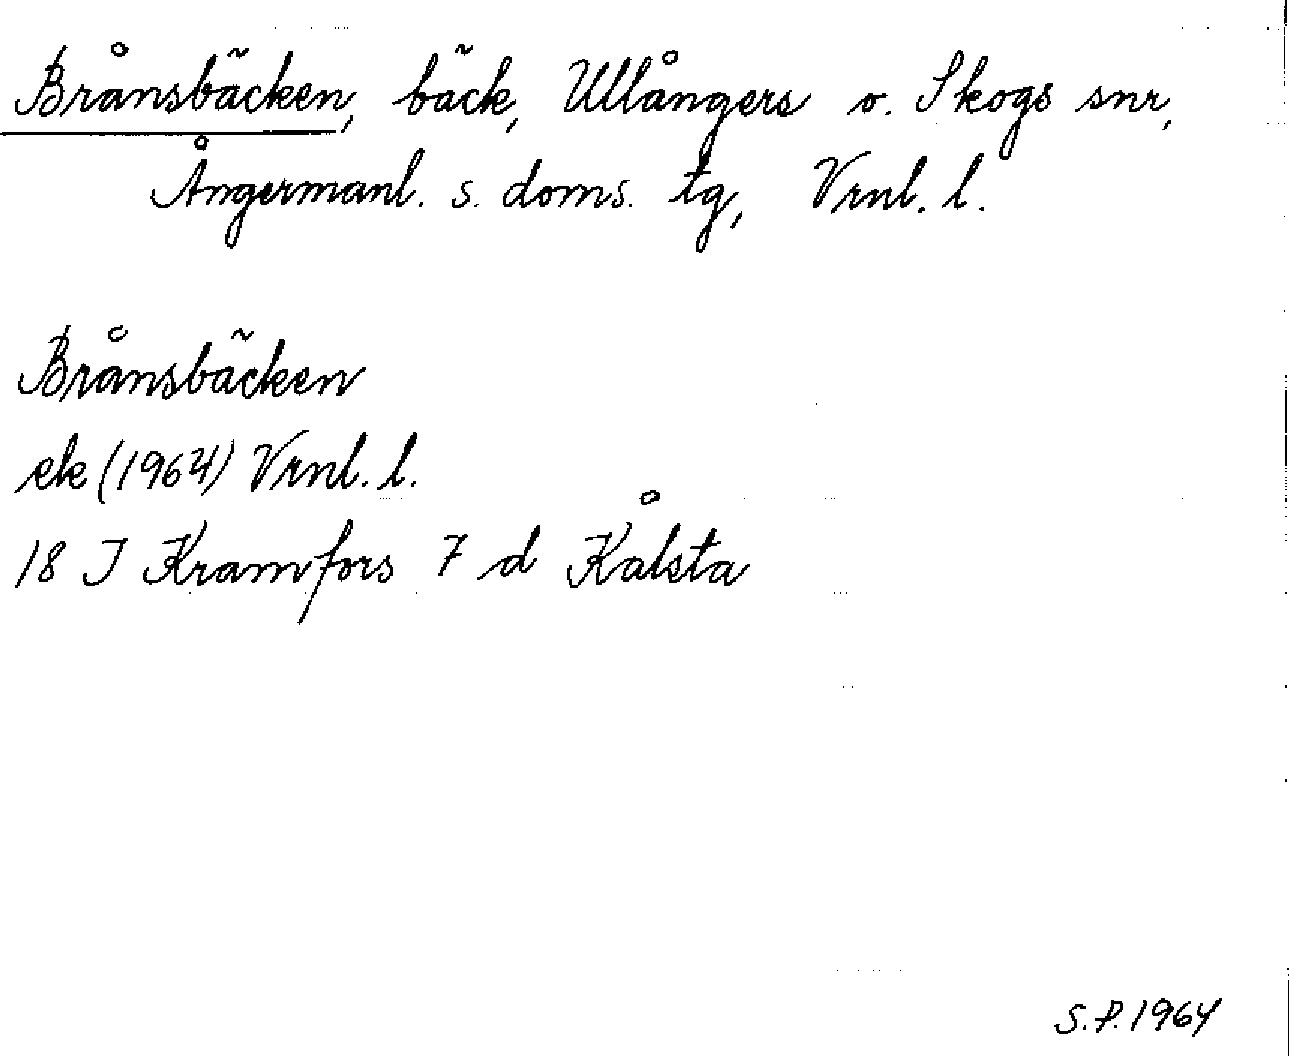 Brånsbäcken, bäck, Ullångers o. Skogs snr,
Ångermanl. s. doms. tg, Vrnl. l.
Brånsbäcken
ek (1964) Vrnl. l.
18 J Kramfors 7 d Kålsta
S.P. 1964